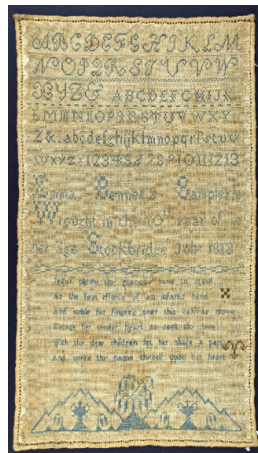 ABCDEFGHIJKLM
NOPQRSTUVW
XYZ& ABCDEFGHIJK
LMNOPQRSTUVWXY
Z&.abcdefghijklmnopqrſstuv
wxyz 12345678910111213
Emma Bennet's Sampler
Wrought in the 10th year of
her age Stockbridge 1813
Jesus permit thy gracious name to stand
As the first efforts of an infants hand
And while her fingers over this canvas move
Engage her tender heart to seek thy love
With thy dear children let her share a part
And write thy name thyself upon her heart